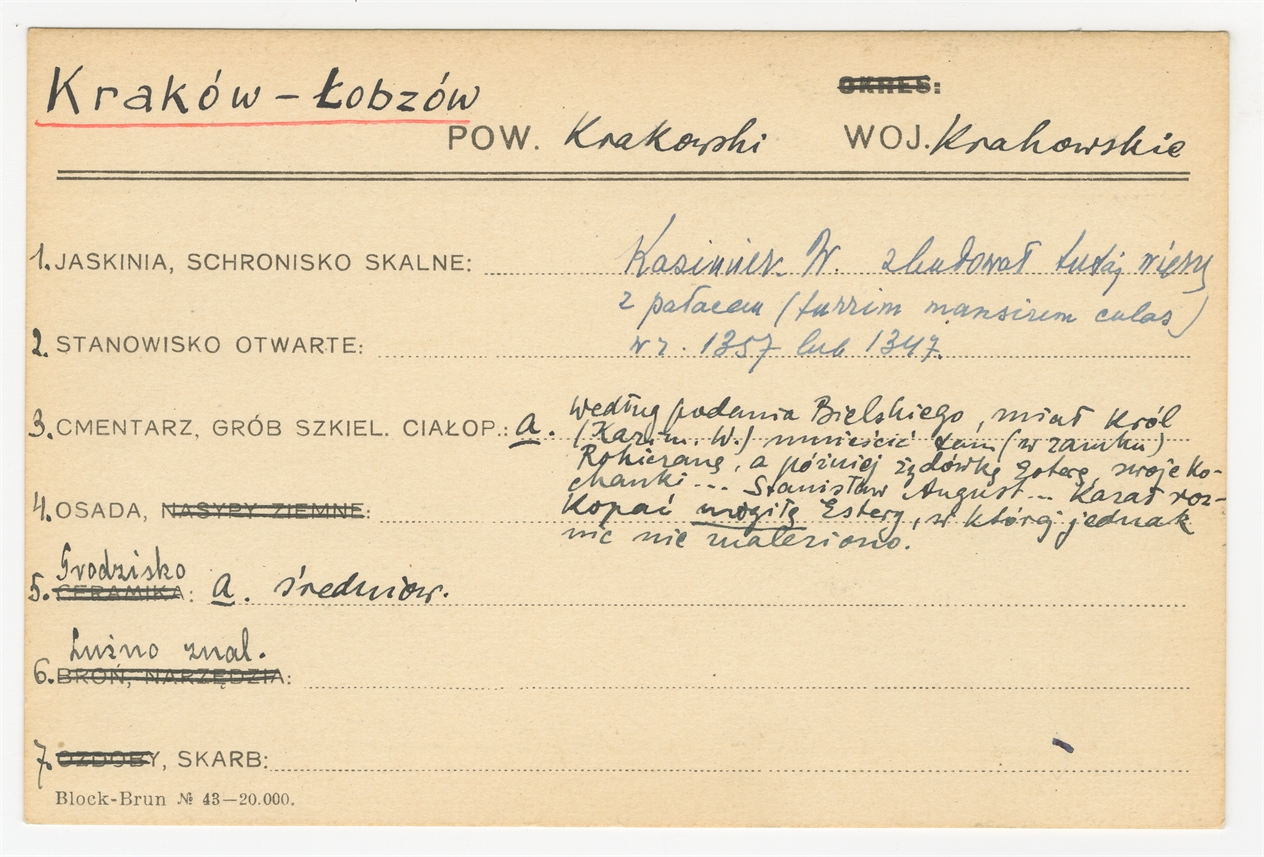 Kraków – Łobzów
OKRES:
POW. Krakowski WOJ. Krakowskie
1. JASKINIA, SCHRONISKO SKALNE: Kazimierz W. zbudował tutaj wieżę
z pałacem (turrim mansirem culas)
2. STANOWISKO OTWARTE: w r. 1357 lub 1347.
3. CMENTARZ, GRÓB SZKIEL. CIAŁOP.: a. według podania Bielskiego, miał Król
(Kazim. W.) umieścić tam (w zamku)
Rokiczanę, a później żydówkę Esterę, swoje ko-
chanki ... Stanisław August ... Kazał roz-
4. OSADA, NASYPY ZIEMNE: kopać mogiłę Estery, w której jednak
nic nie znaleziono.
Grodzisko
5. CERAMIKA: a. średniow.
Luźno znal.
6. BROŃ, NARZĘDZIA:
7. OZDOBY, SKARB:
Block-Brun № 43—20.000.